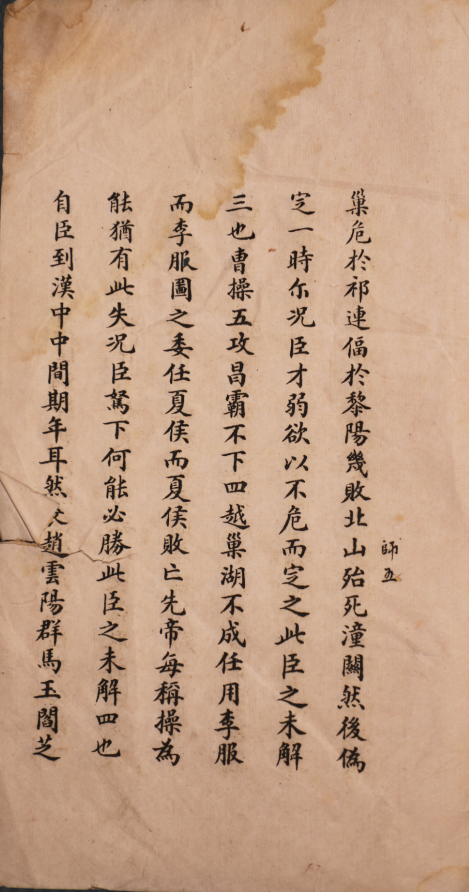 師五
巢危於祁連偪於黎陽幾敗北山殆死潼關然後偽
定一時尔况臣才弱欲以不危而定之此臣之未解
三也曹操五攻昌霸不下四越巢湖不成任用李服
而李服圖之委任夏侯而夏侯敗亡先帝每稱操為
能猶有此失况臣駑下何能必勝此臣之未解四也
自臣到漢中中間期年耳然趙雲陽群馬玉閻芝